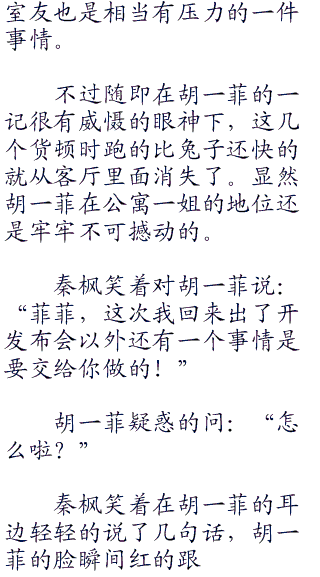 室友也是相当有压力的一件
事情。
不过随即在胡一菲的一
记很有威慑的眼神下，这几
个货顿时跑的比兔子还快的
就从客厅里面消失了。显然
胡一菲在公寓一姐的地位还
是牢牢不可撼动的。
秦枫笑着对胡一菲说：
“菲菲，这次我回来出了开
发布会以外还有一个事情是
要交给你做的！”
胡一菲疑惑的问：“怎
么啦？”
秦枫笑着在胡一菲的耳
边轻轻的说了几句话，胡一
菲的脸瞬间红的跟